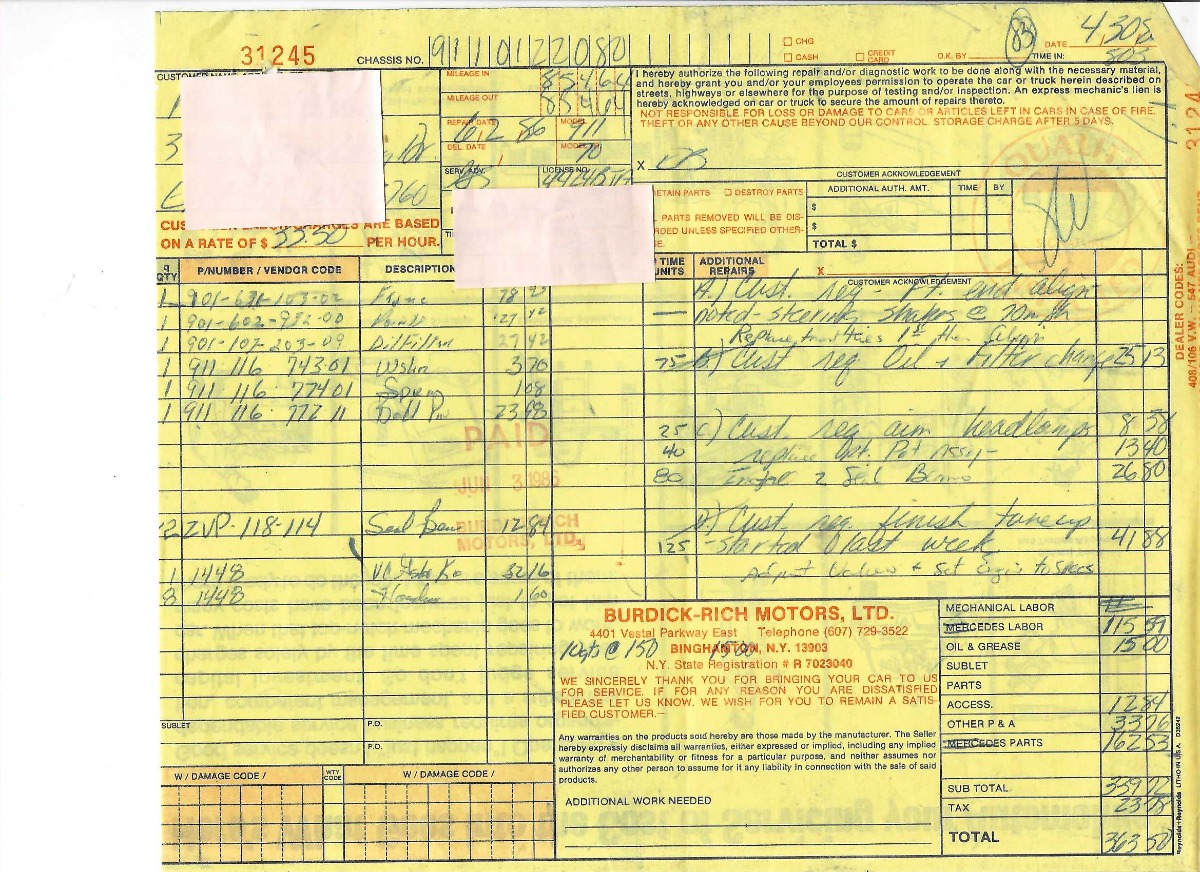 31245
CHASSIS NO. 9110122080
CHG
CASH
CREDIT CARD
O.K. BY
83
DATE
TIME IN:
MILEAGE IN 85464
MILEAGE OUT 85464
REPAIR DATE 6 2 86
MODEL 911
DEL. DATE
70
SERV. ADV.
LICENSE NO.
760
I hereby authorize the following repair and/or diagnostic work to be done along with the necessary material, and hereby grant you and/or your employees permission to operate the car or truck herein described on streets, highways or elsewhere for the purpose of testing and/or inspection. An express mechanic's lien is hereby acknowledged on car or truck to secure the amount of repairs thereto.
NOT RESPONSIBLE FOR LOSS OR DAMAGE TO CARS OR ARTICLES LEFT IN CARS IN CASE OF FIRE, THEFT OR ANY OTHER CAUSE BEYOND OUR CONTROL. STORAGE CHARGE AFTER 5 DAYS.
X
CUSTOMER ACKNOWLEDGEMENT
ETAIN PARTS DESTROY PARTS
PARTS REMOVED WILL BE DIS-
RDED UNLESS SPECIFIED OTHER-
ADDITIONAL AUTH. AMT. TIME BY
$
$
TOTAL $
X
CUSTOMER ACKNOWLEDGEMENT
CHARGES ARE BASED
ON A RATE OF $ 33.50 PER HOUR.
QTY P/NUMBER / VENDOR CODE DESCRIPTION TIME UNITS ADDITIONAL REPAIRS
A.) Cust. req - Ft. end align
noted - steering shakes @ 70 mph
1 911 116 743 01 3 70
75 B.) Cust req Oil + Filter change 25 13
1 911 116 774 01 1 08
1 911 116 772 11 23 98
PAID
JUN 3 1986
BURDICK-RICH
MOTORS, LTD.
25 C) Cust. req aim headlamps 8 38
40 replace 13 40
80 2 Seal Beams 26 80
2 ZVP-118-114 Seal Beam 12 84
D) Cust. req. finish tuneup
125 - started last week 41 88
1 1448 32 16
Adjust Valves + Set Engin to Specs
8 1448 1.60
BURDICK-RICH MOTORS, LTD.
4401 Vestal Parkway East Telephone (607) 729-3522
BINGHAMTON, N.Y. 13903
10 qts @ 150 1500
N.Y. State Registration # R 7023040
WE SINCERELY THANK YOU FOR BRINGING YOUR CAR TO US FOR SERVICE. IF FOR ANY REASON YOU ARE DISSATISFIED PLEASE LET US KNOW. WE WISH FOR YOU TO REMAIN A SATISFIED CUSTOMER.—
Any warranties on the products sold hereby are those made by the manufacturer. The Seller hereby expressly disclaims all warranties, either expressed or implied, including any implied warranty of merchantability or fitness for a particular purpose, and neither assumes nor authorizes any other person to assume for it any liability in connection with the sale of said products.
ADDITIONAL WORK NEEDED
SUBLET P.O.
P.O.
W / DAMAGE CODE / WTY CODE W / DAMAGE CODE /
MECHANICAL LABOR
MERCEDES LABOR 115 59
OIL & GREASE 15 00
SUBLET
PARTS
ACCESS. 12 84
OTHER P & A 33 76
MERCEDES PARTS 162 53
SUB TOTAL 339 72
TAX
TOTAL 363 50
DEALER CODES:
Reynolds+Reynolds LITHO IN U.S.A.